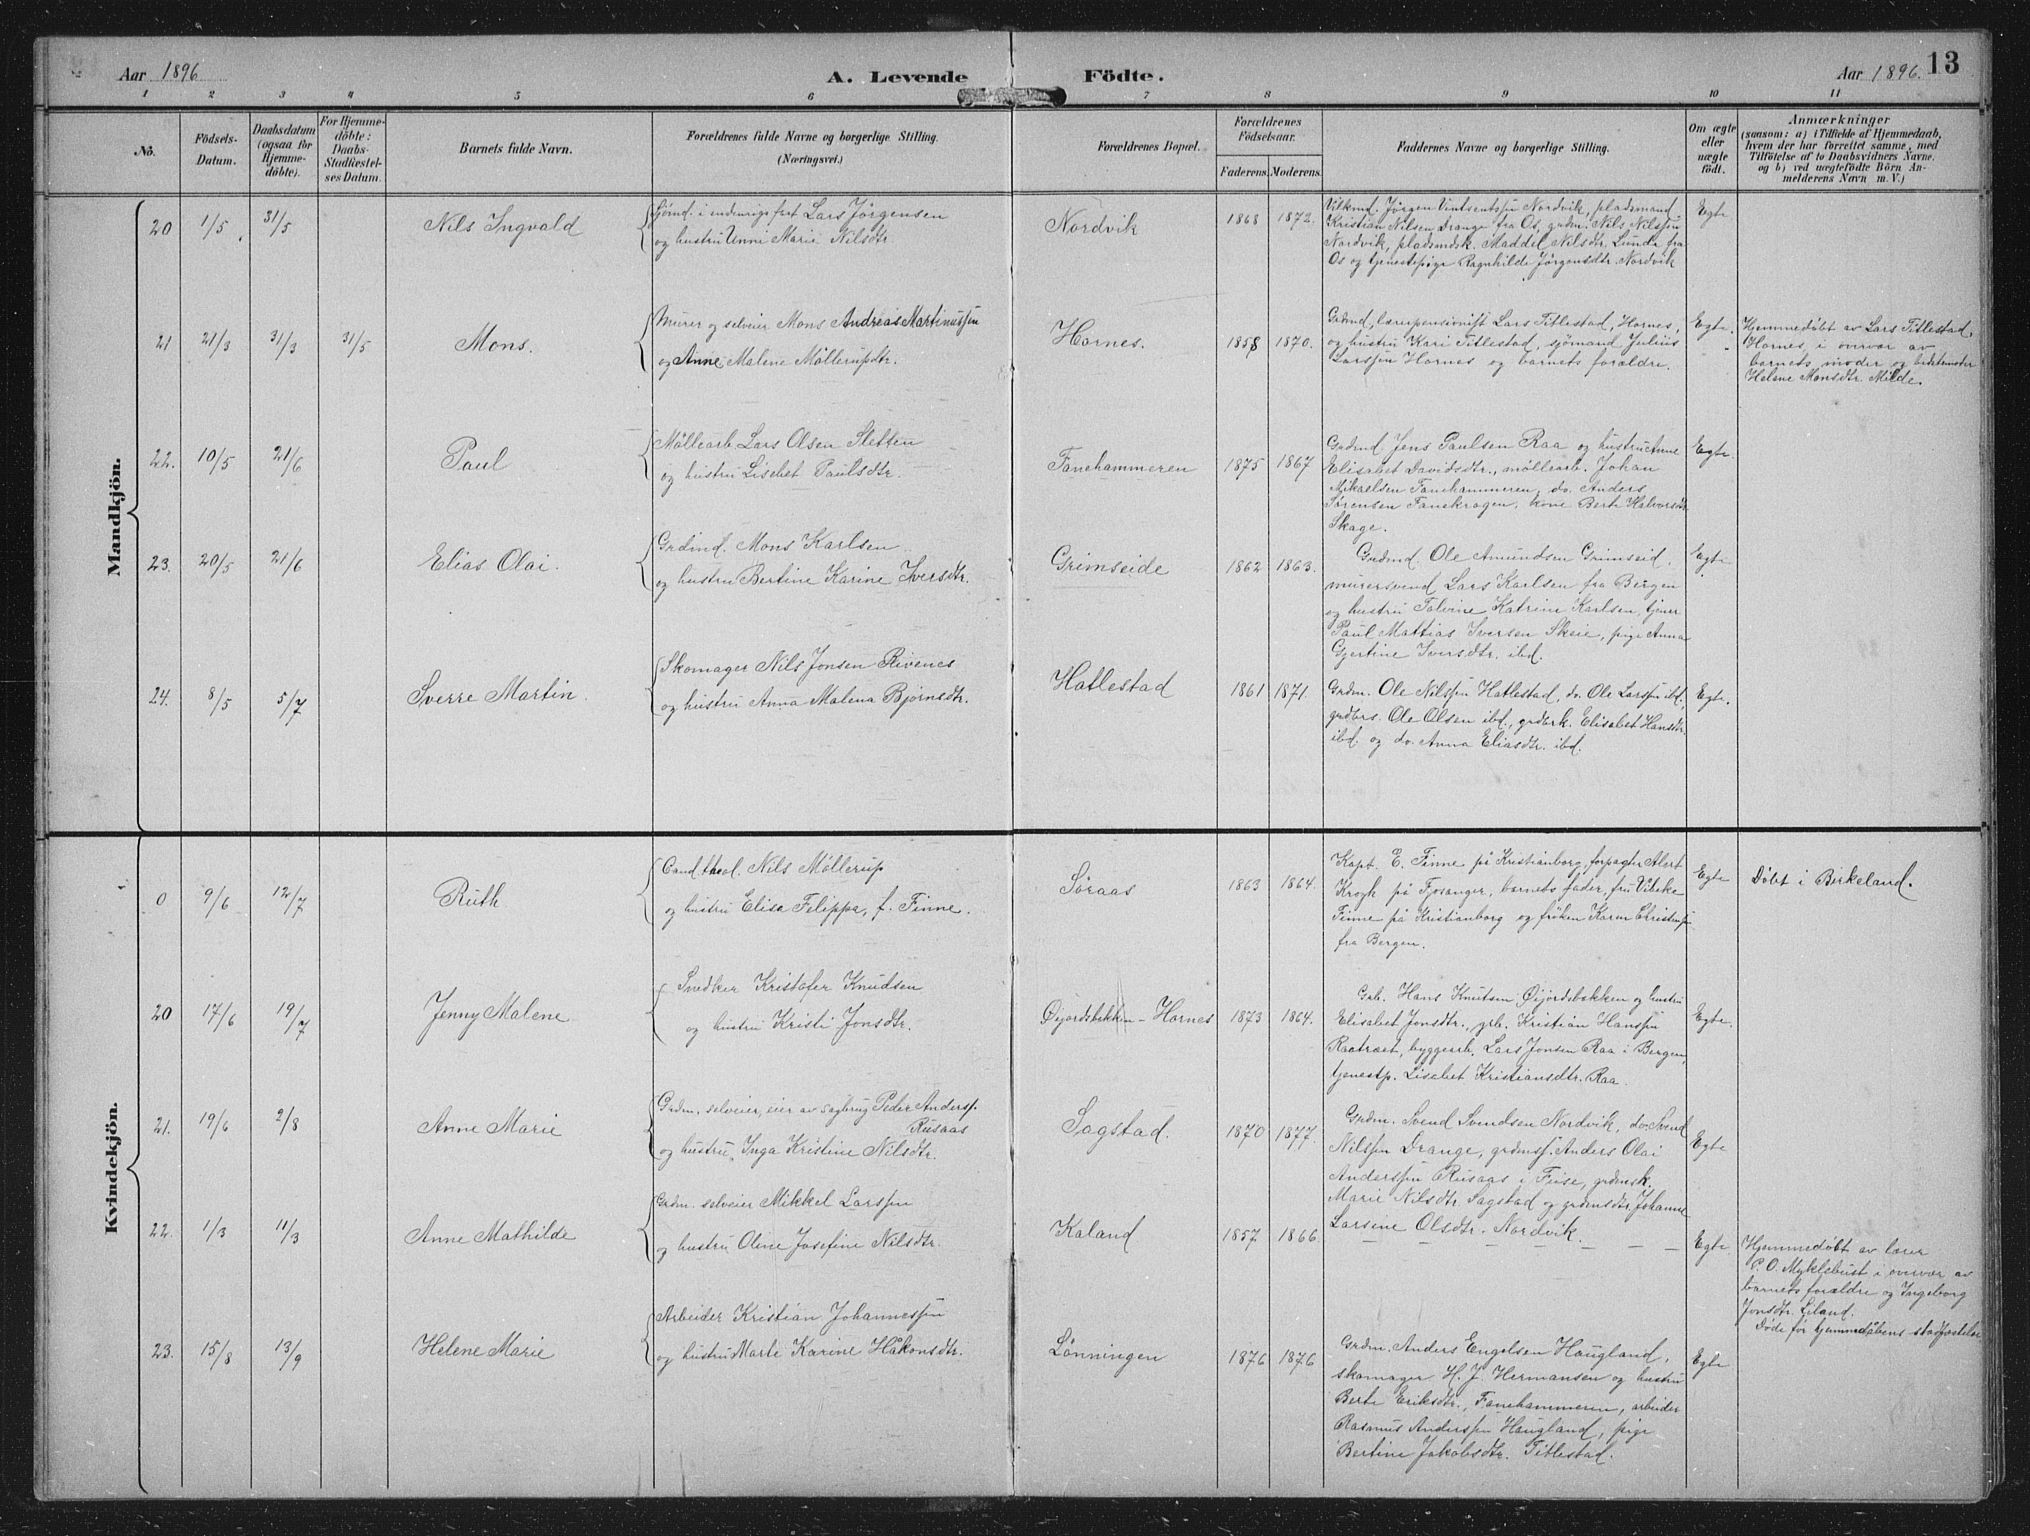 Aar 1896
A. Levende Födte.
Aar 1896. 13
1 2 3 4 5 6 7 8 9 10 11
No.
Födsels-Datum.
Daabsdatum (ogsaa for Hjemmedöbte).
For Hjemmedöbte: Daabs-Stadfæstelses Datum.
Barnets fulde Navn.
Forældrenes fulde Navne og borgerlige Stilling.
(Næringsvei.)
Forældrenes Bopæl.
Forældrenes Födselsaar.
Faderens. Moderens.
Faddernes Navne og borgerlige Stilling.
Om ægte eller uægte födt.
Anmærkninger
(saasom: a) i Tilfælde af Hjemmedaab,
hvem der har forrettet samme, med
Tilföielse af to Daabsvidners Navne,
og b) ved uægtefödte Börn An-
melderens Navn m. V.)
Mandkjön.
20 1/5 31/5 Nils Ingvald
Sjømd. i indenrigsfart Lars Jørgensen
og hustru Unni Marie Nilsdtr.
Nordvik 1868 1872.
Jørgen Vintsentssen Nordvik, pladsmand
Kristian Nilsen Drange fra Os, grdm. Nils Nilssen
Nordvik, pladsmdsk. Maddil Nilsdtr. Lunde fra
Os og tjenestepige Ragnhilde Jørgensdtr. Nordvik
Egte
21 21/3 31/3 31/5 Mons.
Murer og selveier Mons Andreas Martinussen
og Anne Malene Møllerupdtr.
Hornes. 1858 1870.
Grdmd, lærerpensionist Lars Titlestad, Hornes,
og hustru Kari Titlestad, sjömand Julius
Larssen Hornes og barnets forældre.
Egte.
Hjemmedöbt av Lars Titlestad,
Hornes, i overvær av
barnets moder og bedstemoder
Helene Monsdtr. Milde.
22. 10/5 21/6 Paul
Møllearb. Lars Olsen Sletten
og hustru Lisebet Paulsdtr.
Fanehammeren 1875 1867
Grdmd Jens Paulsen Raa og hustru
Elisabet Davidsdtr., møllearb. Johan
Mikaelsen Fanehammeren, do. Anders
Sørensen Fanekrogen, kone Berte Halvorsdtr.
Skage.
Egte.
23. 20/5 21/6 Elias Olai.
Grdmd. Mons Karlsen
og hustru Bertine Karine Iversdtr.
Grimseide 1862 1863.
Grdmd. Ole Amundsen Grimseid,
murersvend Lars Karlsen fra Bergen
og hustru Tolvine Katrine Karlsen, tjener
Paul Mattias Iversen Skeie, pige Anna
Gjertine Iversdtr. ibd.
Egte
24. 8/5 5/7 Sverre Martin.
Skomager Nils Jonsen Rivenes
og hustru Anna Malena Bjørnsdtr.
Hatlestad 1861 1871.
Grdm. Ole Nilssen Hatlestad, do. Ole Larssen ibd.,
grdbrs. Ole Olsen ibd., grdbrk. Elisabet Hansdtr.
ibd. og do. Anna Eliasdtr. ibd.
Egte.
Kvindekjön.
0 9/6 12/7 Ruth
Cand. theol. Nils Möllerup
og hustru Elisa Filippa, f. Finne.
Søraas 1863 1864.
Kapt. E. Finne på Kristianborg, forpagter Alert
Krogh på Fjosanger, barnets fader, fru Vibeke
Finne på Kristianborg og fröken Karen Christensen
fra Bergen.
Egte
Döbt i Birkeland.
20 17/6 19/7 Jenny Malene
Snedker Kristofer Knudsen
og hustru Kristi Jonsdtr.
Øijordsbekken - Hornes 1873 1864.
Grb. Hans Knutsen Øijordsbekken og hustru
Elisabet Jonsdtr., grb. Kristian Hanssen
Raatræet, byggearb. Lars Jonsen Raa i Bergen,
tjenestp. Lisabet Kristiansdtr. Raa.
Egte.
21. 19/6 2/8 Anne Marie
Grdm. selveier, eier av sagbrug Peder Anderss.
Rusaas
og hustru Inga Kristine Nilsdtr.
Sagstad. 1870 1877.
Grdm. Svend Svendsen Nordvik, do. Svend
Nilssen Drange, grdmss. Anders Olai
Anderssen Rusaas i Fuse, grdmsk.
Marie Nilsdtr. Sagstad og grdmsdtr. Johanne
Larsine Olsdtr. Nordvik.
Egte
22. 1/3 11/3 Anne Mathilde
Grdm. selveier Mikkel Larssen
og hustru Oline Josefine Nilsdtr.
Kaland 1857 1866.
Egte
Hjemmedøbt av lærer
P. O. Myklebust i overvær av
barnets forældre og Ingeborg
Jonsdtr. Liland.
Døde før hjemmedåbens stadfæstelse
23. 15/8 13/9 Helene Marie
Arbeider Kristian Johannessen
og hustru Marte Karine Håkonsdtr.
Lönningen 1876 1876
Grdm. Anders Engelsen Haugland,
skomager H. J. Hermansen og hustru
Berte Eriksdtr., Fanehammeren, arbeider
Rasmus Anderssen Haugland, pige
Bertine Jakobsdtr. Titlestad.
Egte